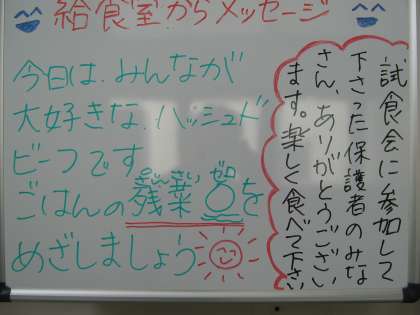 給食室からメッセージ
今日は、みんなが
大好きな、ハッシュド
ビーフです
ごはんの残菜0を
ざんさい ゼロ
めざしましょう
試食会に参加して
下さった保護者のみな
さん、ありがとうござい
ます。楽しく食べて下さい